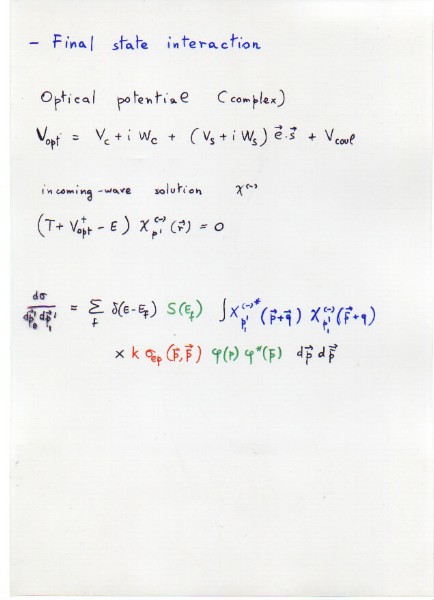 - Final state interaction
Optical potential (complex)
V_opt = V_C + i W_C + (V_S + i W_S) ℓ⃗·s⃗ + V_coul
incoming-wave solution χ^(-)
(T + V_opt^+ - E) χ_p'^(-) (r⃗) = 0
dσ / dp⃗'_e dp⃗'_1 = Σ_f δ(E-E_f) S(E_f) ∫ χ_p'_1^(-)* (p⃗+q⃗) χ_p'_1^(-) (p̃⃗+q)
× k σ_ep (p⃗, p̃⃗) φ(p) φ*(p̃) dp⃗ dp̃⃗